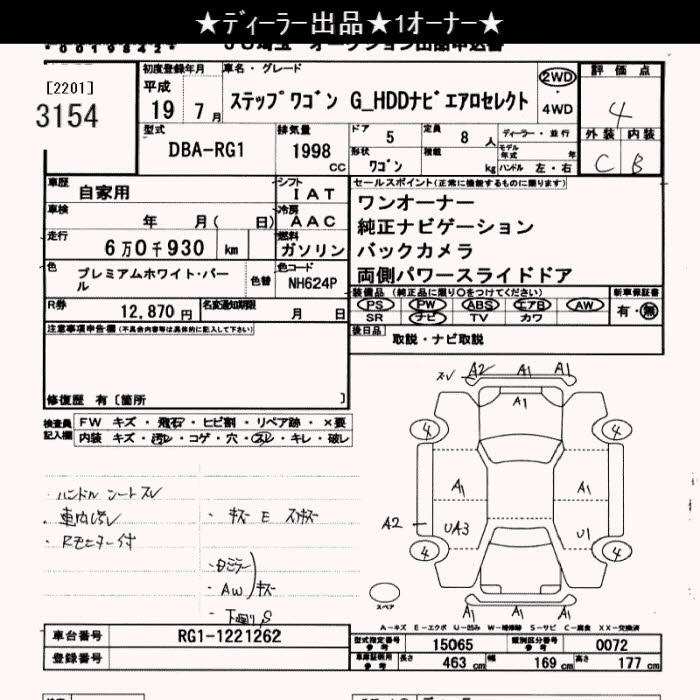 ★ディーラー出品★1オーナー★
*0019842*
[2201]
3154
初度登録年月
平成
19 7 月
車名・グレード
ステップワゴン G_HDDナビエアロセレクト
2WD
・
4WD
評価点
4
外装 内装
C B
型式
DBA-RG1
排気量
1998
CC
ドア
5
定員
8 人
形状
ワゴン
積載
kg
ディーラー・並行
モデル年式 年
ハンドル 左・右
車歴
自家用
シフト
IAT
車検
年 月( 日)
冷房
AAC
走行
6万0千930 km
燃料
ガソリン
色
プレミアムホワイト・パール
色替
色コード
NH624P
R券
12,870 円
名変通知期限
月 日
セールスポイント(正常に機能するものに限ります)
ワンオーナー
純正ナビゲーション
バックカメラ
両側パワースライドドア
装備品(純正品に限り○をつけてください)
PS PW ABS エアB AW
SR ナビ TV カワ
新車保証書
有・無
後日品
取説・ナビ取説
注意事項申告欄(不具合内容等は具体的に記入して下さい)
修復歴 有〔箇所 〕
検査員
記入欄
FW キズ・飛石・ヒビ割・リペア跡・×要
内装 キズ・汚レ・コゲ・穴・スレ・キレ・破レ
・ハンドル シートスレ
・車内汚レ
・Rモニター付
・キズ E スリキズ
・Dミラー
・AW キズ
・下廻り S
スレ A2 A1 A1
A1
4 4
A1 A1
A2 UA3 U1
4 4
スペア
A1 A1 A1
A-キズ E-エクボ U-凹み W-補修跡 S-サビ C-腐食 XX-交換済
車台番号
RG1-1221262
登録番号
型式指定番号
参考
15065
類別区分番号
参考
0072
車庫証明用
参考
長さ 463 cm 幅 169 cm 高さ 177 cm